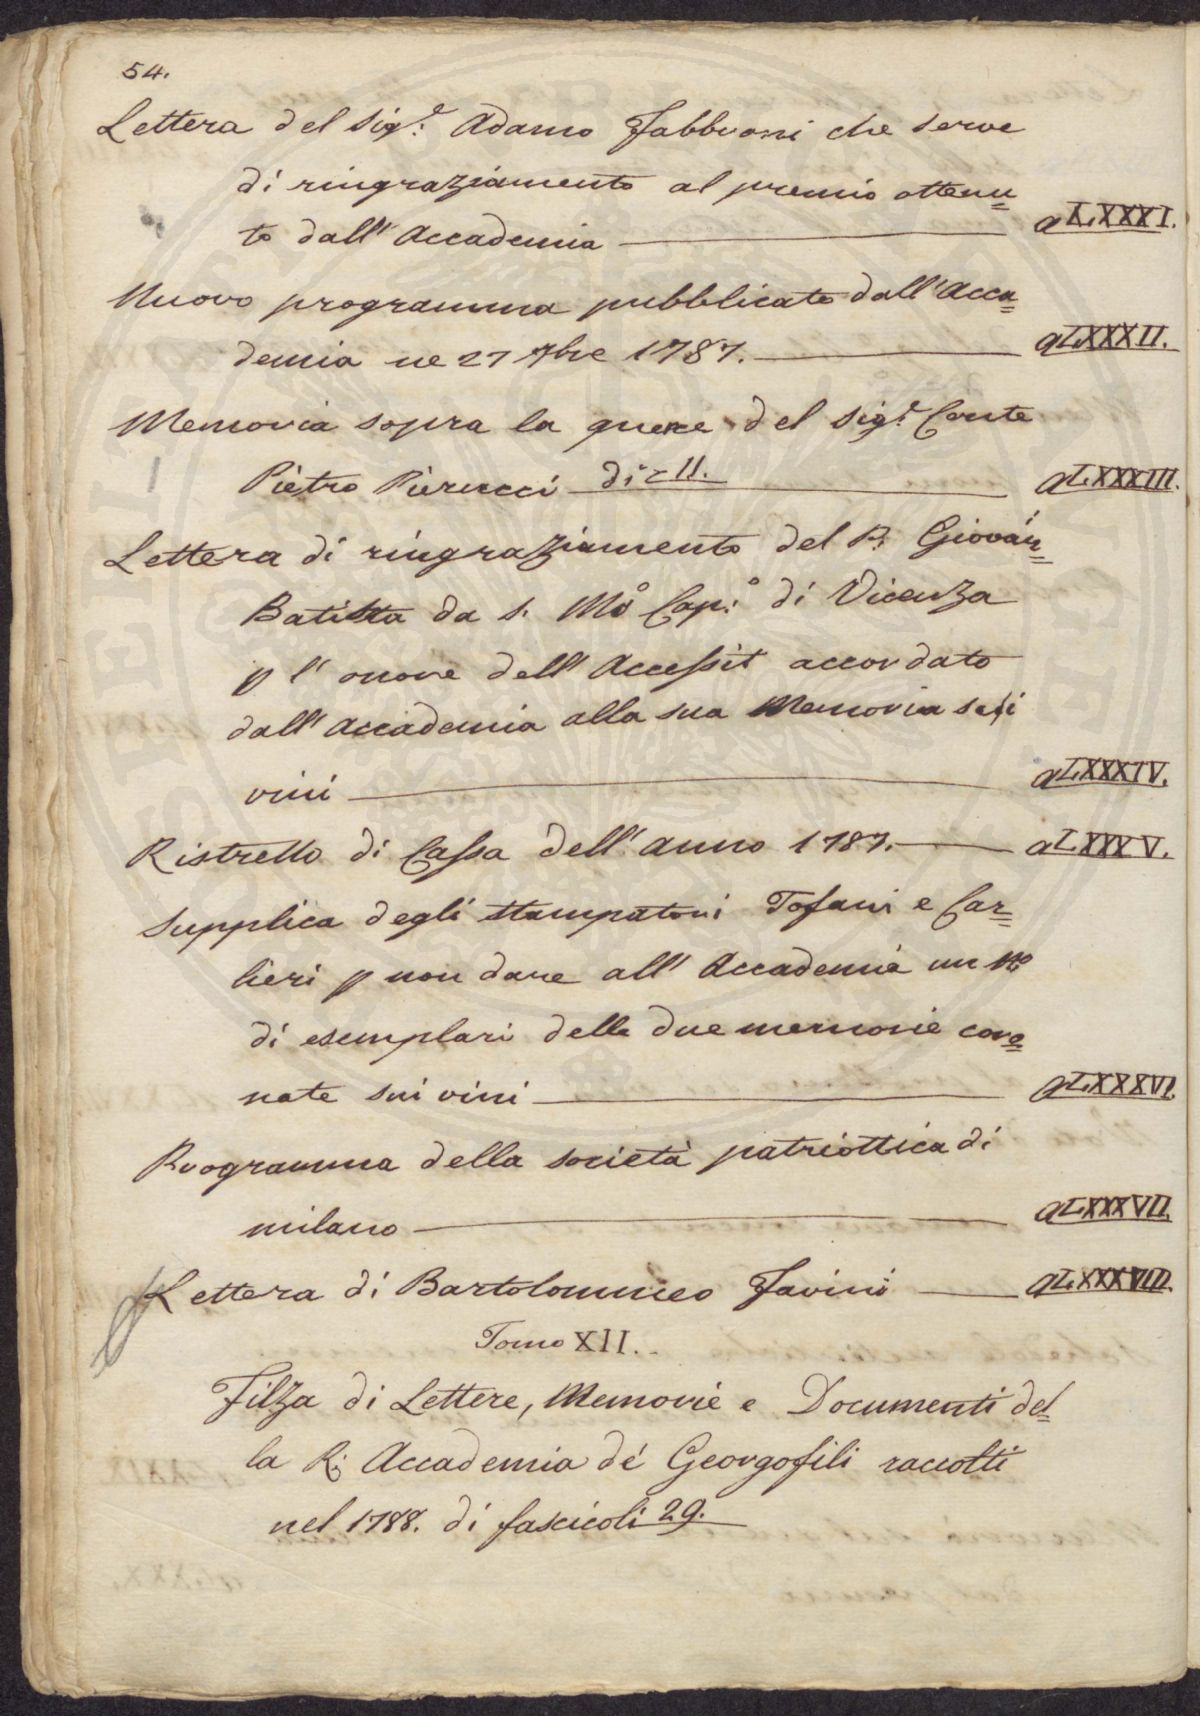 54.
Lettera del Sig.e Adamo Fabbroni che serve
di ringraziamento al premio ottenu=
to dall' Accademia — a LXXXI.
Nuovo programma pubblicato dall' Acca=
demia ne 27 7bre 1787. — a LXXXII.
Memoria sopra la querce del Sig.e Conte
Pietro Pierucci di c 11. — a LXXXIII.
Lettera di ringraziamento del P. Giovan=
Batista da S. Mo Cap.o di Vicenza
p l' onore dell' Accessit accordato
dall' Accademia alla sua Memoria su i
vini — a LXXXIV.
Ristretto di Cassa dell' anno 1787. — a LXXXV.
Supplica degli stampatori Tofani e Car=
lieri p non dare all' Accademia un no
di esemplari delle due memorie coro=
nate sui vini — a LXXXVI.
Programma della società patriottica di
milano — a LXXXVII.
Lettera di Bartolommeo Favini — a LXXXVIII.
Tomo XII.
Filza di Lettere, Memorie e Documenti del=
la R. Accademia de' Georgofili raccolti
nel 1788. di fascicoli 29.